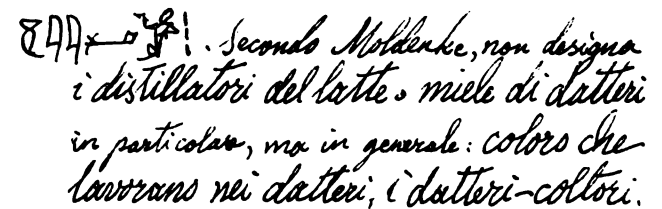 ! . Secondo Moldenke, non designa
i distillatori del latte o miele di datteri
in particolare, ma in generale: coloro che
lavorano nei datteri, i datteri-coltori.